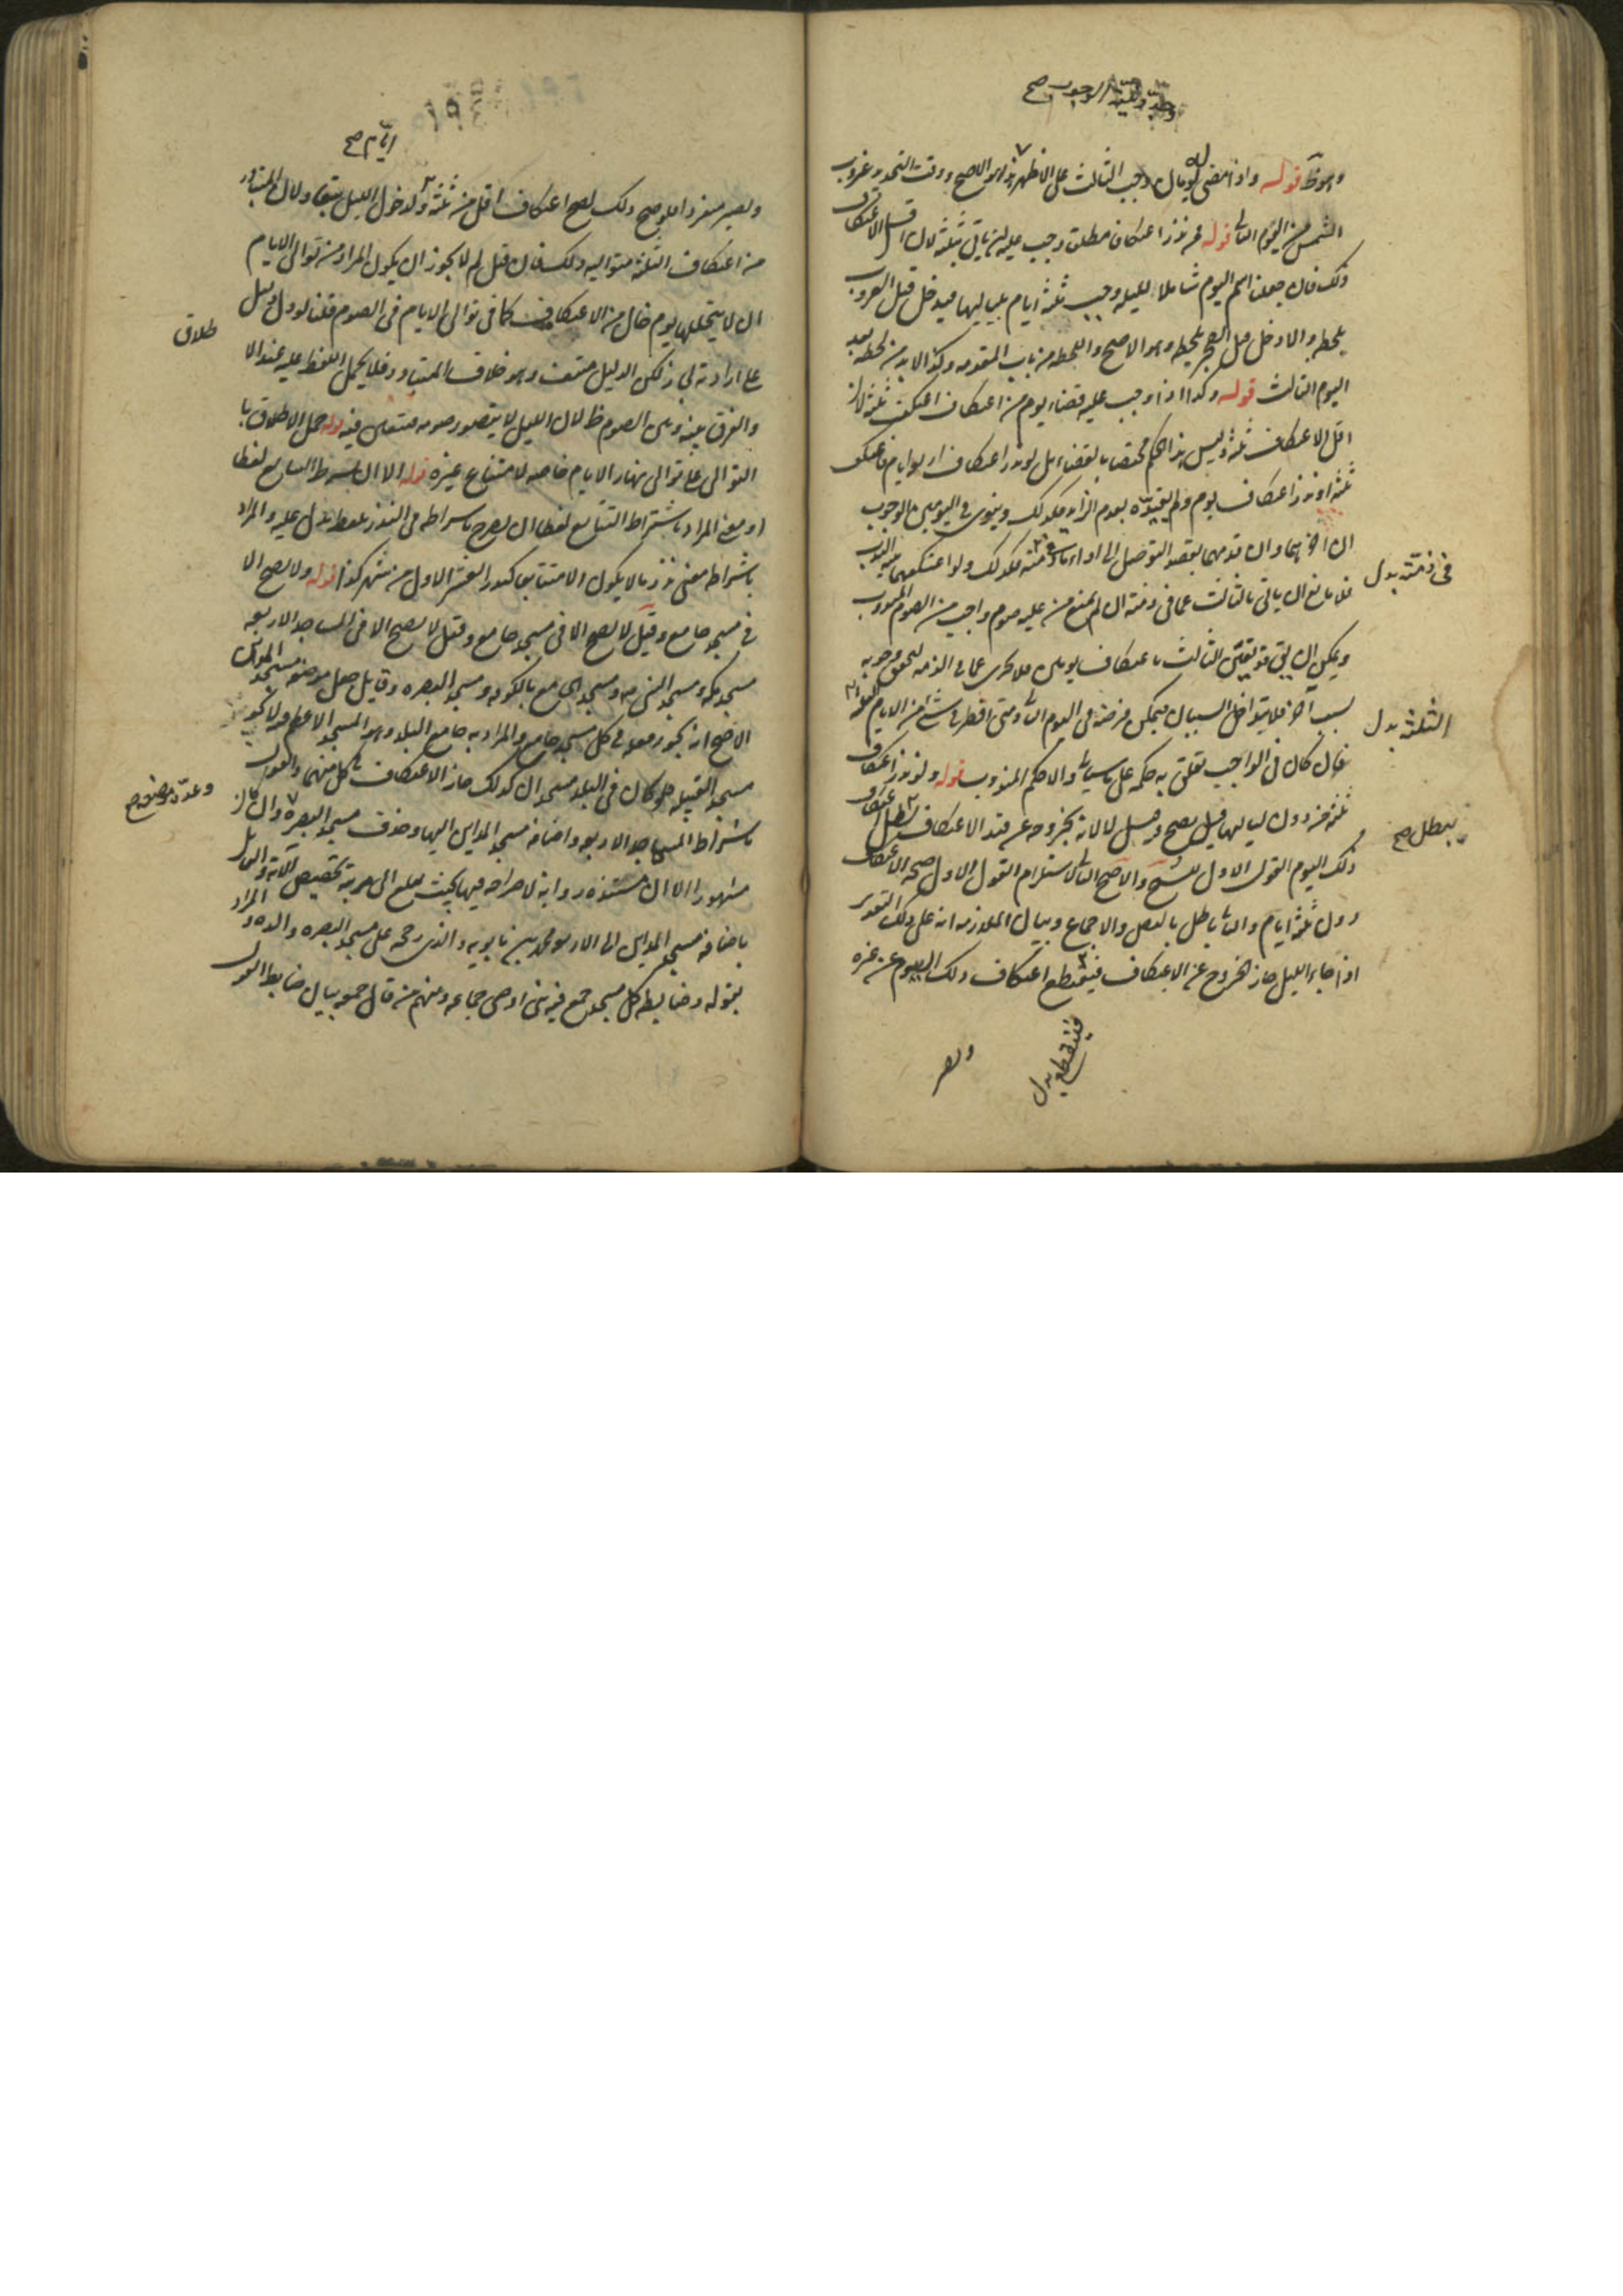 وهو ظ قوله واذا مضى له يومان وجب الثالث على الاظهر هذا هو الاصح ووقت التحديد غروب
الشمس من اليوم الثانى قوله من نذر اعتكافا مطلقا وجب عليه ان ياتى بثلثة لان اقل الاعتكاف
ذلك فان جعلنا اسم اليوم شاملا لليله وجب ثلثة ايام بلياليها فيدخل قبل الغروب
بلحظه والا دخل قبل الفجر بلحظه وهو الاصح واللحظه من باب المقدمه وكذا لابد من لحظه بعد
اليوم الثالث قوله وكذا اذا وجب عليه قضاء يوم من اعتكاف اعتكف ثلثة لان
اقل الاعتكاف ثلثة وليس هذا الحكم مختصا بالقضاء بل لو نذر اعتكاف اربع ايام فاعتكف
ثلثة او نذر اعتكاف يوم ولم يقيده بعدم الزايد فكذلك وينوى فى اليومين الوجوب
ان اخرهما وان قدمهما بقصد التوصل الى اداء ما فى ذمته فكذلك ولو اعتكفهما بنية الندب
فلا مانع ان ياتى بالثالث عما فى ذمته ان لم يمنع من عليه صوم واجب من الصوم المندوب
ويمكن ان يقال قد تعين الثالث باعتكاف يومين فلا يجزى عما فى الذمه لتحقق وجوبه
بسبب آخر فلا يتداخل السببان
فان كان فى الواجب تعلق به حكمه على ما سياتى والا حكم المندوب قوله ولو نذر اعتكاف
ثلثة من دون لياليها قيل يصح وقيل لا لانه بخروجه عن قيد الاعتكاف يبطل اعتكاف
ذلك اليوم القول الاول للشيخ والاصح الثانى لاستلزام القول الاول صحة الاعتكاف
دون ثلثة ايام والثانى باطل بالنص والاجماع وبيان الملازمه انه على ذلك التقدير
اذا جاء الليل جاز الخروج عن الاعتكاف فينقطع اعتكاف ذلك اليوم عن غيره
فى ذمته بدل
الثلثة بدل
يبطل صح
فينقطع بدل
ويصير
ايام صح
ويصير منفردا فلو صح ذلك لصح اعتكاف اقل من ثلثة
من اعتكاف الثلثة متواليه ذلك فان قيل لم لا يجوز ان يكون المراد من توالى الايام
ان لا يتخللها يوم خال من الاعتكاف كما فى توالى الايام فى الصوم قلنا لو دل دليل
على ارادته جاز لكن الدليل منتف وهو خلاف المتبادر فلا يحمل اللفظ عليه عند الا
والفرق بينه وبين الصوم ظ لان الليل لا يتصور صومه فتعين فيه حمل الاطلاق با
التوالى على توالى نهار الايام خاصه لامتناع غيره قوله الا ان يشترط التتابع لفظا
او معنى المراد باشتراط التتابع لفظا ان يصرح باشتراطه فى النذر بلفظ يدل عليه والمراد
باشتراطه معنى نذر ما لا يكون الا متتابعا كنذر العشر الاول من شهر كذا قوله ولا يصح الا
فى مسجد جامع وقيل لا يصح الا فى مسجد جامع وقيل لا يصح الا فى المساجد الاربعه
مسجد مكه ومسجد النبى ص ومسجد الجامع بالكوفه ومسجد البصره وقايل جعل موضعه مسجد المداين
الاصح انه يجوز فعله فى كل مسجد جامع والمراد به جامع البلد وهو المسجد الاعظم
مسجد القبيله فلو كان فى البلد مسجدان كذلك جاز الاعتكاف بكل منهما والقول
باشتراط المساجد الاربعه واضافة مسجد المداين اليها وحذف مسجد البصره وان كان
مشهورا الا ان مستنده روايه لا صراحه فيها بحيث يبلغ الى مرتبه تخصيص الايه
باضافة مسجد المداين الى الاربعه محمد بن بابويه
بقوله وضابطه كل مسجد جمع فيه نبى او وصى جماعه ومنهم من قال جمعه بيان ضابط القول
طلاق